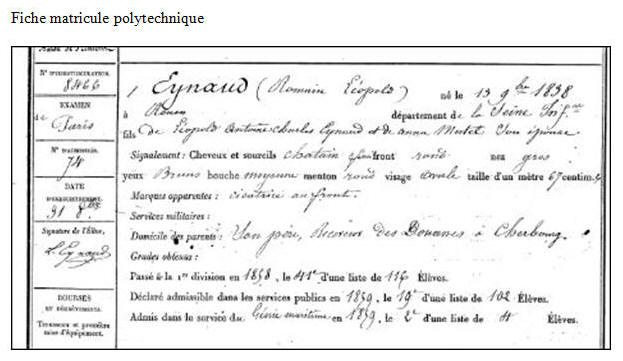 Fiche matricule polytechnique
N° D'IMMATRICULATION.
8466
EXAMEN
de Paris
N° D'ADMISSION.
74
DATE
D'ENREGISTREMENT.
31 8bre
Signature de l'Élève,
L. Eynaud
BOURSES
ET DÉGRÈVEMENTS.
Trousseau et première
mise d'équipement.
Eynaud (Romain Léopold) né le 13 9bre 1838
à Rouen département de la Seine Infre
fils de Léopold Antoine Charles Eynaud et de Anna Mutel son épouse
Signalement: Cheveux et sourcils chatain front rond nez gros
yeux Bruns bouche moyenne menton rond visage ovale taille d'un mètre 67 centim.
Marques apparentes: cicatrice au front.
Services militaires:
Domicile des parents: Son père, Receveur des Douanes à Cherbourg.
Grades obtenus:
Passé à la 1re division en 1858, le 41e d'une liste de 116 Élèves.
Déclaré admissible dans les services publics en 1859, le 19e d'une liste de 102 Élèves.
Admis dans le service du Génie maritime en 1859, le 2e d'une liste de 4 Élèves.